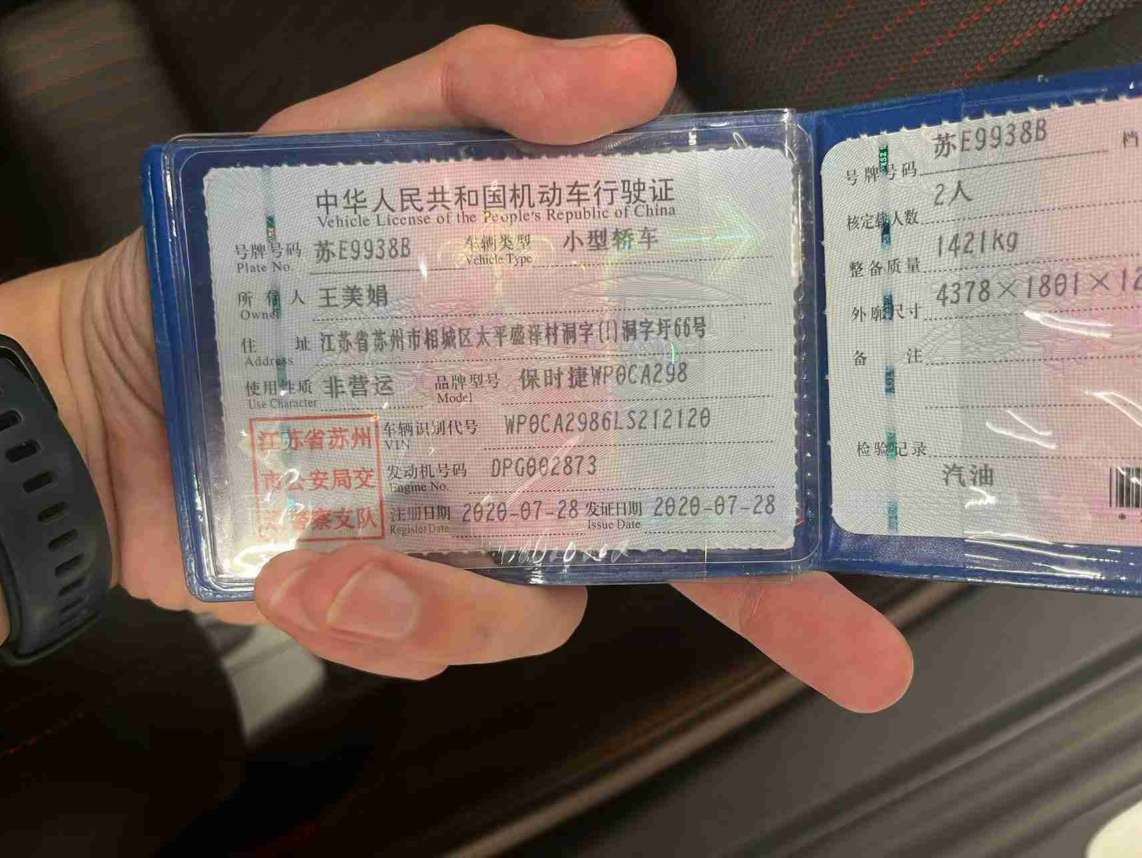 中华人民共和国机动车行驶证
Vehicle License of the People's Republic of China
号牌号码 苏E9938B 车辆类型 小型轿车
Plate No. Vehicle Type
所有人 王美娟
Owner
住址 江苏省苏州市相城区太平盛泽村洞字(1)洞字圩66号
Address
使用性质 非营运 品牌型号 保时捷WP0CA298
Use Character Model
江苏省苏州
市公安局交
通警察支队
车辆识别代号 WP0CA2986LS212120
VIN
发动机号码 DPG002873
Engine No.
注册日期 2020-07-28 发证日期 2020-07-28
Register Date Issue Date
号牌号码 苏E9938B 档
核定载人数 2人
整备质量 1421kg
外廓尺寸 4378×1801×12
备注
检验记录
汽油